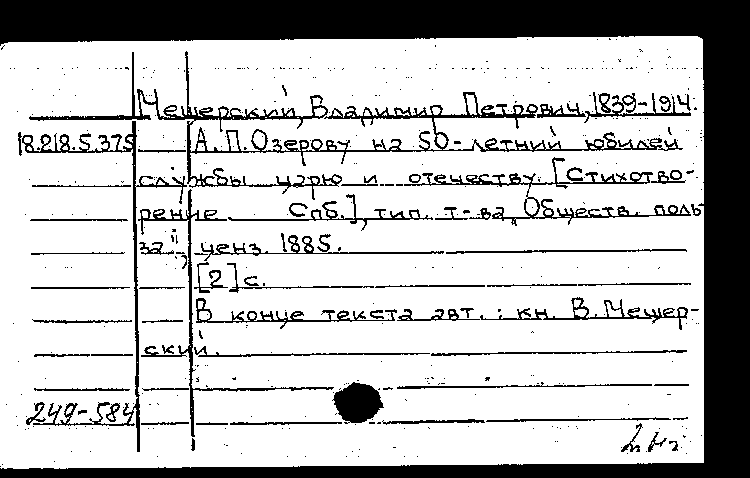 Мещерский, Владимир Петрович, 1839-1914.
18.218.5.375 А.П.Озерову на 50-летний юбилей
службы царю и отечеству. [Стихотво-
рение. Спб.], тип. т-ва „Обществ. поль
за", ценз. 1885.
[2] с.
В конце текста авт.: кн. В. Мещер-
ский.
249-584